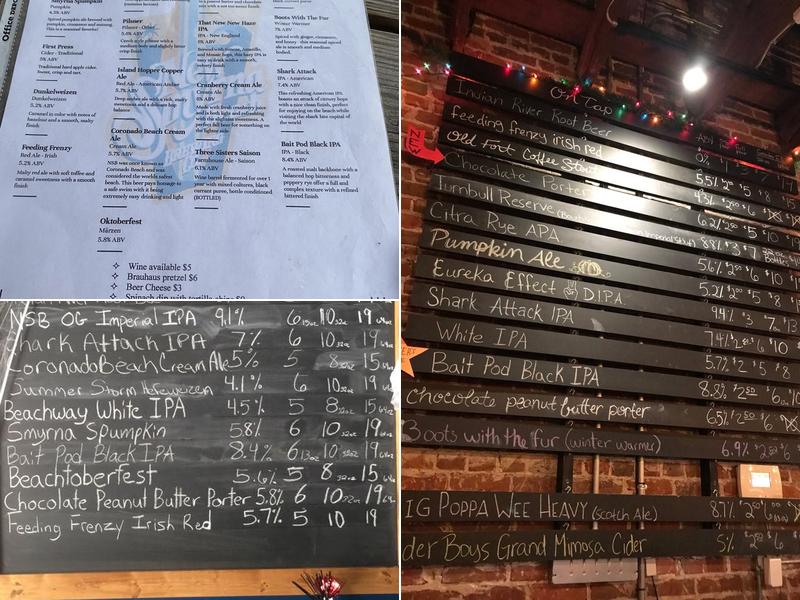 Office
Smyrna Spumpkin
Pumpkin
4.2% ABV
Spiced pumpkin ale flavored with
pumpkin, cinnamon and nutmeg.
This is a seasonal favorite!
First Press
Cider - Traditional
5% ABV
Traditional hard apple cider.
Sweet, crisp and tart.
Dunkelweizen
Dunkelweizen
5.2% ABV
Caramel in color with notes of
hazelnut and a smooth, malty
finish.
Feeding Frenzy
Red Ale - Irish
5.2% ABV
Malty red ale with soft toffee and
caramel sweetness with a smooth
finish.
Pilsner
Pilsner - Other
5.6% ABV
Czech style pilsner with a
medium body and slightly bitter
crisp finish
Island Hopper Copper
Ale
Red Ale - American Amber
5.7% ABV
Deep amber ale with a rich, malty
sweetness and a delicate hop
balance.
Coronado Beach Cream
Ale
Cream Ale
5.7% ABV
NSB was once known as
Coronado Beach and was
considered the worlds safest
beach. This beer pays homage to
a safe swim with it being
extremely easy drinking and light
That New New Haze
IPA
IPA - New England
6% ABV
Brewed with
and Mosaic hops, this hazy IPA is
easy to drink with a smooth,
velvety finish.
Cranberry Cream Ale
Cream Ale
6% ABV
Made with fresh cranberry juice
and is both light and refreshing
with the slightest tartness. A
perfect fall beer for something on
the lighter side
Three Sisters Saison
Farmhouse Ale - Saison
6.1% ABV
Wine barrel fermented for over 1
year with mixed cultures, black
currant puree, bottle conditioned
(BOTTLED)
Boots With The Fur
Winter Warmer
7% ABV
Spiced with ginger, cinnamon,
and honey - this seasonal spiced
ale is smooth and medium
bodied.
Shark Attack
IPA - American
7.4% ABV
This refreshing American IPA
boasts an attack of citrusy hops
with a nice clean finish, perfect
for enjoying on the beach while
visiting the shark bite capital of
the world
Bait Pod Black IPA
IPA - Black
8.4% ABV
A roasted malt backbone with a
balanced hop bitterness and
peppery rye offer a full and
complex texture with a refined
lattered finish
Oktoberfest
Märzen
5.8% ABV
Wine available $5
Brauhaus pretzel $6
Beer Cheese $3
NSB OG Imperial IPA 9.1% 6 13oz 10 32oz 19 64oz
Shark Attack IPA 7% 6 10 32oz 19 64oz
Coronado Beach Cream Ale 5% 5 8 32oz 15 64oz
Summer Storm Hefeweizen 4.1% 6 10 32oz 19 64oz
Beachway White IPA 4.5% 5 8 32oz 15 64oz
Smyrna Spumpkin 5.8% 6 10 32oz 19 64oz
Bait Pod Black IPA 8.4% 6 13oz 10 32oz 19 64oz
Beachtoberfest 5.6% 5 8 32oz 15 64oz
Chocolate Peanut Butter Porter 5.8% 6 10 32oz 19 64oz
Feeding Frenzy Irish Red 5.7% 5 10 19
On Tap
Indian River Root Beer 0%
feeding frenzy irish red 5.5%
NEW
Old Fort Coffee Stout
Chocolate Porter
Turnbull Reserve 8.9% $3 $7
Citra Rye APA 5.6%
Pumpkin Ale 5.2%
Eureka Effect DIPA 9.4% $3
Shark Attack IPA 7.4%
White IPA 5.7%
Bait Pod Black IPA 8.3%
Chocolate peanut butter porter 6.5%
Boots with the fur (winter warmer) 6.9%
IG POPPA WEE HEAVY (scotch Ale) 8.7%
der Boys Grand Mimosa Cider 5%